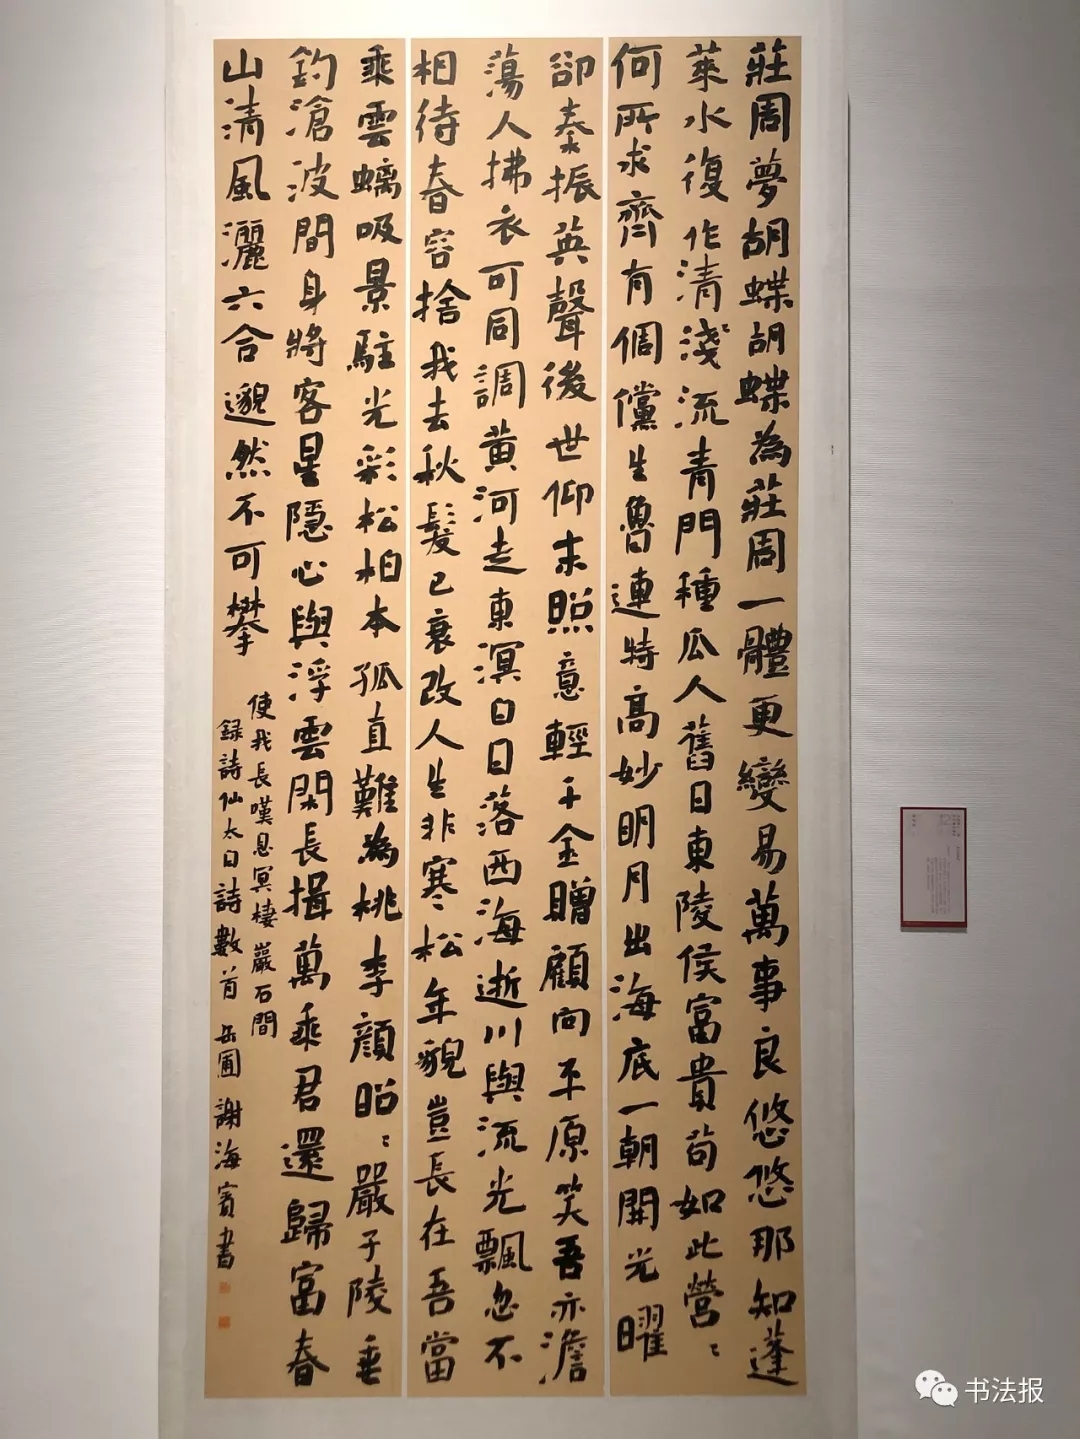 莊周夢胡蝶胡蝶為莊周一體更變易萬事良悠悠那知蓬
萊水復作清淺流青門種瓜人舊日東陵侯富貴苟如此營〻
何所求齊有倜儻生魯連特高妙明月出海底一朝開光曜
卻秦振英聲後世仰末照意輕千金贈顧向平原笑吾亦澹
蕩人拂衣可同調黃河走東溟白日落西海逝川與流光飄忽不
相待春容捨我去秋髮已衰改人生非寒松年貌豈長在吾當
乘雲螭吸景駐光彩松柏本孤直難為桃李顏昭〻嚴子陵垂
釣滄波間身將客星隱心與浮雲閑長揖萬乘君還歸富春
山清風灑六合邈然不可攀
使我長嘆息冥棲巖石間
録詩仙太白詩數首岳圃謝海賓書
书法报